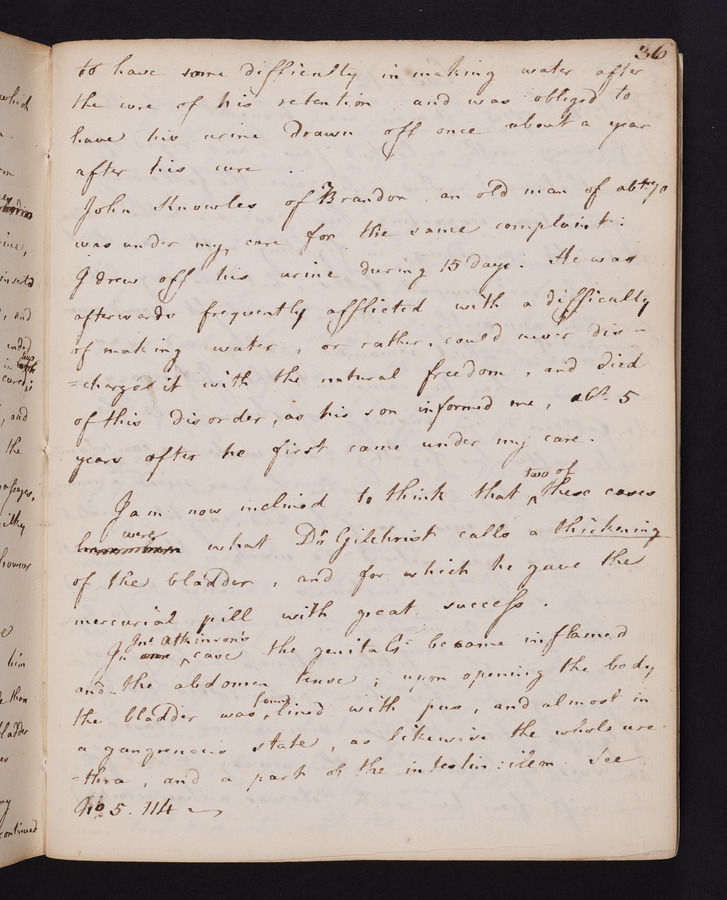 36
to have some difficulty in making water after
the cure of his retention and was obliged to
have his urine drawn off once about a year
after his cure.
John Knowles of Brandon an old man of abt. 70
was under my care for the same complaint:
I drew off his urine during 15 days. He was
afterwards frequently afflicted with a difficulty
of making water, or rather, could never dis-
=charged it with the natural freedom, and died
of this disorder, as his son informed me, abt. 5
years after he first came under my care.
two of
I am now inclined to think that ^ these cases
were
what Dr. Gilchrist calls a thickening
of the bladder, and for which he gave the
mercurial pill with great success.
Jno. Atkinson's
In one ^ case the genitals became inflamed
and the abdomen tense; upon opening the body
found
the bladder was ^ lined with pus, and almost in
a gangrenous state, as likewise the whole ure-
=thra, and a part of the intestin: ilem. See
No. 5. 114
which
and
the
him
than
bladder
continued